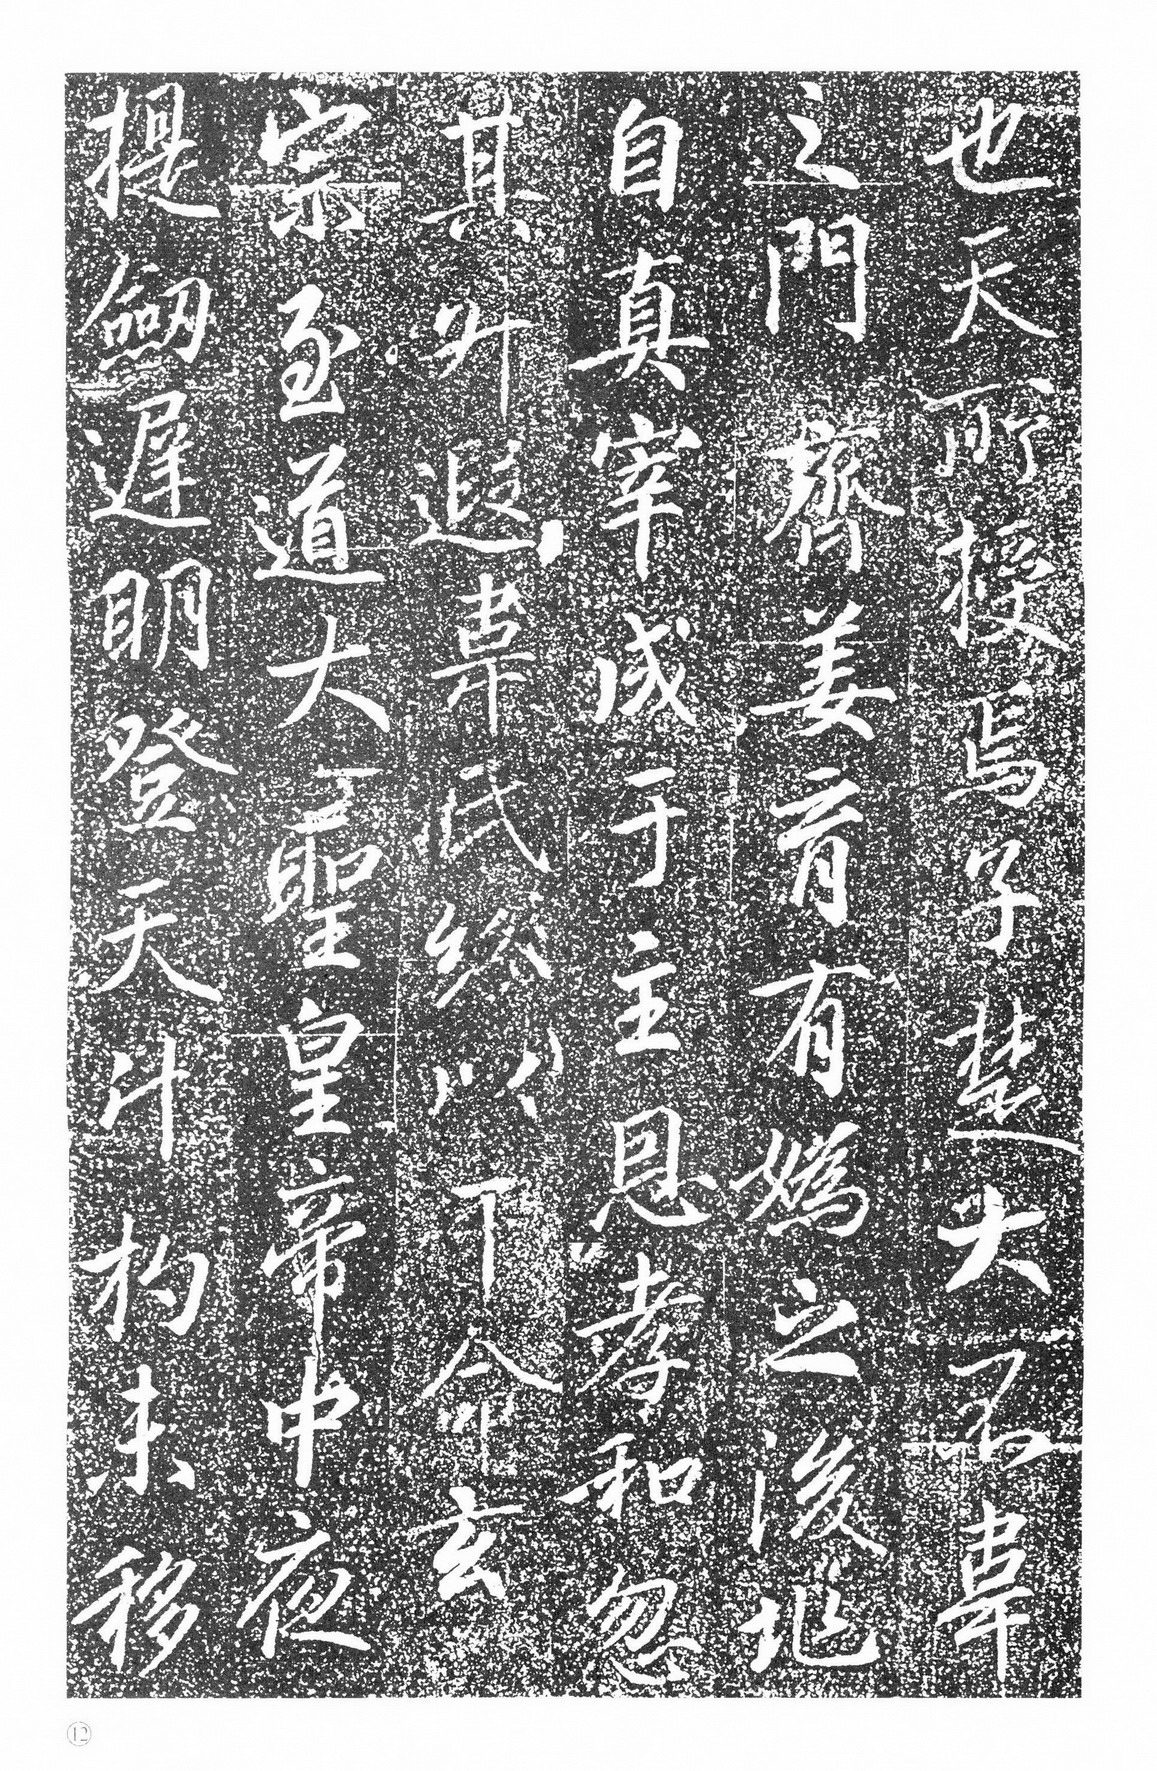 也天所授焉子楚大不韋
之門齊姜育有媯之後兆
自真宰成于主恩孝和忽
其升遐韋氏紛以下命玄
宗至道大聖皇帝中夜
提劒遲明登天斗杓未移
12